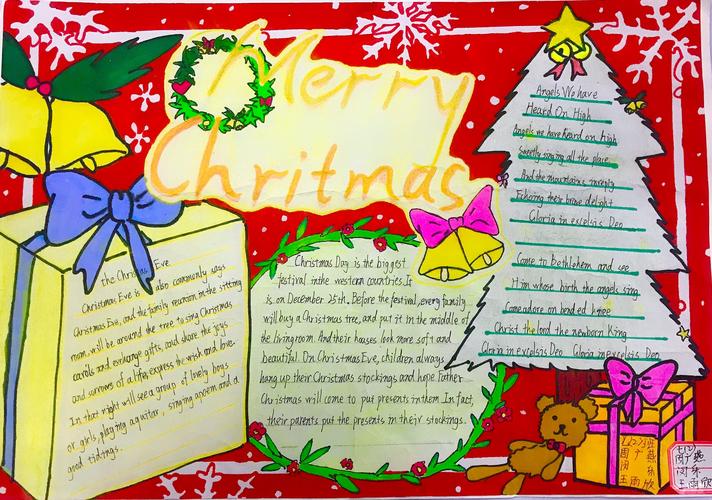 Merry
Chritmas
the Christmas Eve
Christmas Eve is also commonly says
Christmas Eve, and the family reunion in the sitting
room, will be around the tree to sing Christmas
carols and exchange gifts, and share the joys
and sorrows of a life, express the wish and love.
In that night will see a group of lovely boys
or girls, playing a guitar, singing a poem and a
good tidings.
Christmas Day is the biggest
festival in the western countries. It
is on December 25th. Before the festival, every family
will buy a Christmas tree, and put it in the middle of
the living room. And their houses look more soft and
beautiful. On Christmas Eve, children always
hang up their Christmas stockings and hope Father
Christmas will come to put presents in them. In fact,
their parents put the presents in their stockings.
Angels We have
Heard On High
Angels we have heard on high
Sweetly singing all the plare
And the mountains in reply
Echoing their brave delight
Gloria in excelsis Deo
Come to Bethlehem and see
Him whose birth the angels sing
Come adore on bended
Christ the lood the newborn King
Gloria in excelsis Deo Gloria in excelsis Deo
七(2)班
周广燕
闵乐
王雨欣
七(2)
周广燕
闵乐
王雨欣